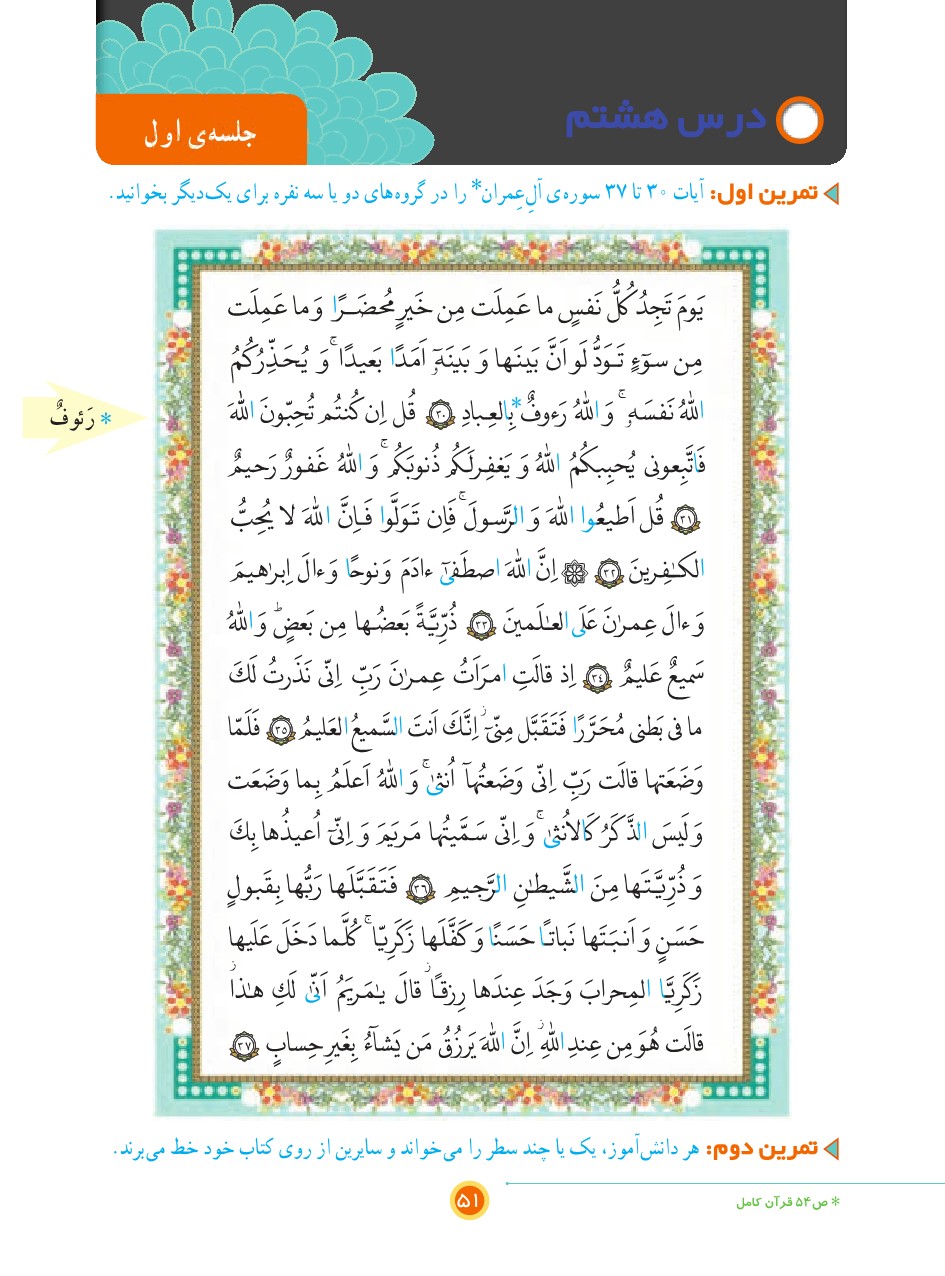 درس هشتم
جلسه‌ی اول
تمرین اول: آیات ۳۰ تا ۳۷ سوره‌ی آلِ عِمران* را در گروه‌های دو یا سه نفره برای یک‌دیگر بخوانید.
يَومَ تَجِدُ كُلُّ نَفسٍ ما عَمِلَت مِن خَيرٍ مُحضَرًا وَ ما عَمِلَت
مِن سوٓءٍ تَوَدُّ لَو اَنَّ بَينَها وَ بَينَهٗٓ اَمَدًا بَعيدًا ۚ وَ يُحَذِّرُكُمُ
اللّٰهُ نَفسَهٗ ۚ وَ اللّٰهُ رَءوفٌ* بِالعِبادِ ۝۳۰ قُل اِن كُنتُم تُحِبّونَ اللّٰهَ
* رَئوفٌ
فَاتَّبِعونی يُحبِبكُمُ اللّٰهُ وَ يَغفِرلَكُم ذُنوبَكُم ۚ وَ اللّٰهُ غَفورٌ رَحيمٌ
۝۳۱ قُل اَطيعُوا اللّٰهَ وَ الرَّسولَ ۚ فَاِن تَوَلَّوا فَاِنَّ اللّٰهَ لا يُحِبُّ
الكٰفِرينَ ۝۳۲ ۞ اِنَّ اللّٰهَ اصطَفیٰٓ ءادَمَ وَ نوحًا وَ ءالَ اِبرٰهيمَ
وَ ءالَ عِمرٰنَ عَلَى العٰلَمينَ ۝۳۳ ذُرِّيَّةً بَعضُها مِن بَعضٍ ۗ وَ اللّٰهُ
سَميعٌ عَليمٌ ۝۳۴ اِذ قالَتِ امرَاَتُ عِمرٰنَ رَبِّ اِنّی نَذَرتُ لَكَ
ما فی بَطنی مُحَرَّرًا فَتَقَبَّل مِنّیٓ ۖ اِنَّكَ اَنتَ السَّميعُ العَليمُ ۝۳۵ فَلَمّا
وَضَعَتها قالَت رَبِّ اِنّی وَضَعتُهآ اُنثیٰ ۚ وَ اللّٰهُ اَعلَمُ بِما وَضَعَت
وَ لَيسَ الذَّكَرُ كَالاُنثیٰ ۚ وَ اِنّی سَمَّيتُها مَريَمَ وَ اِنّیٓ اُعيذُها بِكَ
وَ ذُرِّيَّتَها مِنَ الشَّيطٰنِ الرَّجيمِ ۝۳۶ فَتَقَبَّلَها رَبُّها بِقَبولٍ
حَسَنٍ وَ اَنبَتَها نَباتًا حَسَنًا وَ كَفَّلَها زَكَرِيّا ۚ كُلَّما دَخَلَ عَلَيها
زَكَرِيَّا المِحرابَ وَجَدَ عِندَها رِزقًا ۖ قالَ يٰمَريَمُ اَنّیٰ لَكِ هٰذا ۖ
قالَت هُوَ مِن عِندِ اللّٰهِ ۖ اِنَّ اللّٰهَ يَرزُقُ مَن يَشآءُ بِغَيرِ حِسابٍ ۝۳۷
تمرین دوم: هر دانش‌آموز، یک یا چند سطر را می‌خواند و سایرین از روی کتاب خود خط می‌برند.
* ص۵۴ قرآن کامل
۵۱